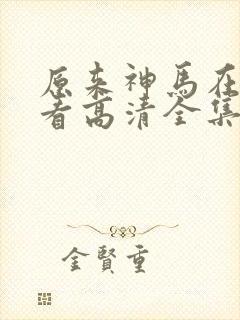 原来神马在
看高清全集
金賢重